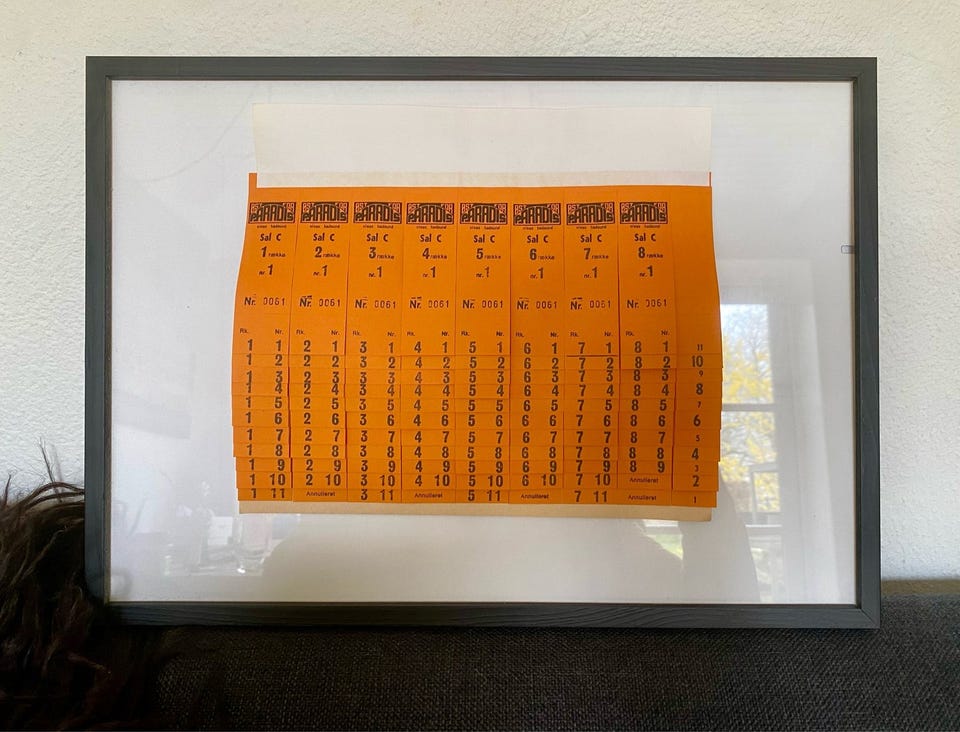 ØST FOR PARADIS ØST FOR PARADIS ØST FOR PARADIS ØST FOR PARADIS ØST FOR PARADIS ØST FOR PARADIS ØST FOR PARADIS ØST FOR PARADIS
Sal C Sal C Sal C Sal C Sal C Sal C Sal C Sal C
1 række 2 række 3 række 4 række 5 række 6 række 7 række 8 række
nr. 1 nr. 1 nr. 1 nr. 1 nr. 1 nr. 1 nr. 1 nr. 1
Nr. 0061 Nr. 0061 Nr. 0061 Nr. 0061 Nr. 0061 Nr. 0061 Nr. 0061 Nr. 0061
Rk. Nr. Rk. Nr. Rk. Nr. Rk. Nr. Rk. Nr. Rk. Nr. Rk. Nr. Rk. Nr.
1 1 2 1 3 1 4 1 5 1 6 1 7 1 8 1 11
1 2 2 2 3 2 4 2 5 2 6 2 7 2 8 2 10
1 3 2 3 3 3 4 3 5 3 6 3 7 3 8 3 9
1 4 2 4 3 4 4 4 5 4 6 4 7 4 8 4 8
1 5 2 5 3 5 4 5 5 5 6 5 7 5 8 5 7
1 6 2 6 3 6 4 6 5 6 6 6 7 6 8 6 6
1 7 2 7 3 7 4 7 5 7 6 7 7 7 8 7 5
1 8 2 8 3 8 4 8 5 8 6 8 7 8 8 8 4
1 9 2 9 3 9 4 9 5 9 6 9 7 9 8 9 3
1 10 2 10 3 10 4 10 5 10 6 10 7 10 Annulleret 2
1 11 Annulleret 3 11 4 11 5 11 Annulleret 7 11 Annulleret 1